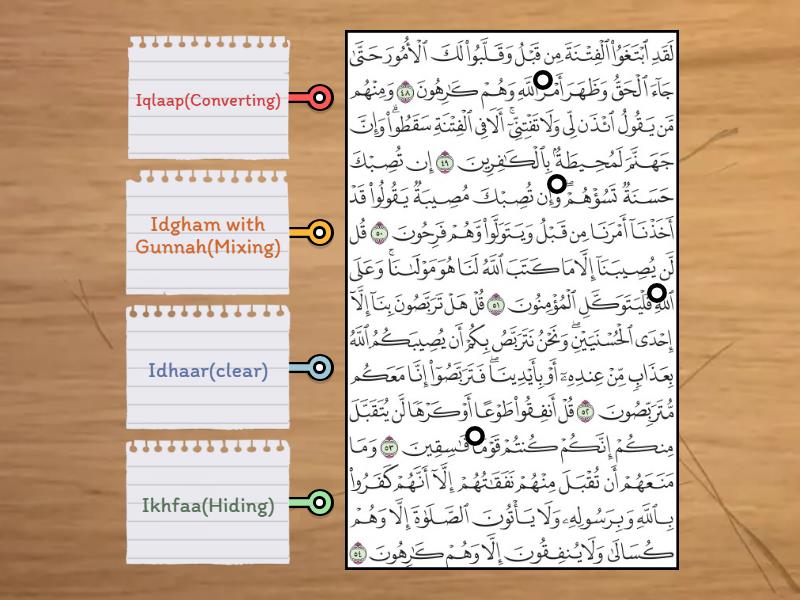 Iqlaap(Converting)
Idgham with
Gunnah(Mixing)
Idhaar(clear)
Ikhfaa(Hiding)
لَقَدِ ٱبْتَغَوُا۟ ٱلْفِتْنَةَ مِن قَبْلُ وَقَلَّبُوا۟ لَكَ ٱلْأُمُورَ حَتَّىٰ
جَآءَ ٱلْحَقُّ وَظَهَرَ أَمْرُ ٱللَّهِ وَهُمْ كَـٰرِهُونَ ٤٨ وَمِنْهُم
مَّن يَقُولُ ٱئْذَن لِّى وَلَا تَفْتِنِّىٓ ۚ أَلَا فِى ٱلْفِتْنَةِ سَقَطُوا۟ ۗ وَإِنَّ
جَهَنَّمَ لَمُحِيطَةٌۢ بِٱلْكَـٰفِرِينَ ٤٩ إِن تُصِبْكَ
حَسَنَةٌ تَسُؤْهُمْ ۖ وَإِن تُصِبْكَ مُصِيبَةٌ يَقُولُوا۟ قَدْ
أَخَذْنَآ أَمْرَنَا مِن قَبْلُ وَيَتَوَلَّوا۟ وَّهُمْ فَرِحُونَ ٥٠ قُل
لَّن يُصِيبَنَآ إِلَّا مَا كَتَبَ ٱللَّهُ لَنَا هُوَ مَوْلَىٰنَا ۚ وَعَلَى
ٱللَّهِ فَلْيَتَوَكَّلِ ٱلْمُؤْمِنُونَ ٥١ قُلْ هَلْ تَرَبَّصُونَ بِنَآ إِلَّآ
إِحْدَى ٱلْحُسْنَيَيْنِ ۖ وَنَحْنُ نَتَرَبَّصُ بِكُمْ أَن يُصِيبَكُمُ ٱللَّهُ
بِعَذَابٍ مِّنْ عِندِهِۦٓ أَوْ بِأَيْدِينَا ۖ فَتَرَبَّصُوٓا۟ إِنَّا مَعَكُم
مُّتَرَبِّصُونَ ٥٢ قُلْ أَنفِقُوا۟ طَوْعًا أَوْ كَرْهًا لَّن يُتَقَبَّلَ
مِنكُمْ ۖ إِنَّكُمْ كُنتُمْ قَوْمًا فَـٰسِقِينَ ٥٣ وَمَا
مَنَعَهُمْ أَن تُقْبَلَ مِنْهُمْ نَفَقَـٰتُهُمْ إِلَّآ أَنَّهُمْ كَفَرُوا۟
بِٱللَّهِ وَبِرَسُولِهِۦ وَلَا يَأْتُونَ ٱلصَّلَوٰةَ إِلَّا وَهُمْ
كُسَالَىٰ وَلَا يُنفِقُونَ إِلَّا وَهُمْ كَـٰرِهُونَ ٥٤